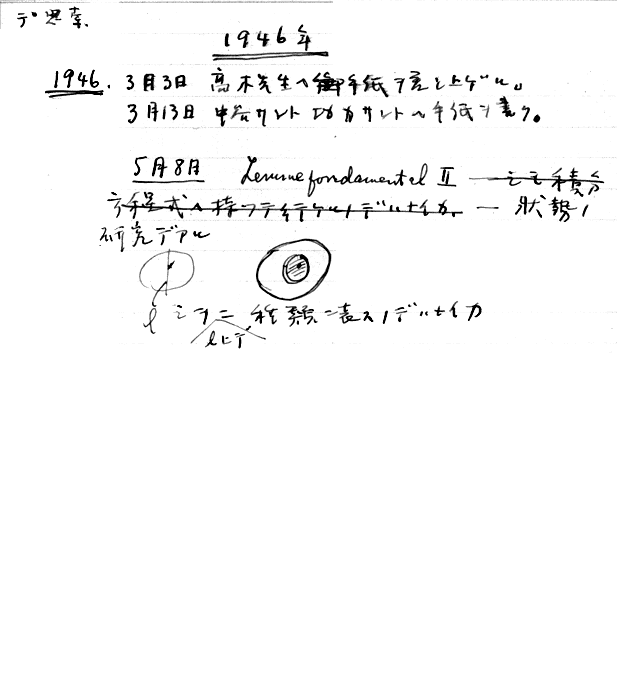 デ思索、
1946年
1946. 3月3日 高木先生へ御手紙ヲ差シ上ゲル。
3月13日 中谷サント カサントへ手紙ヲ書ク。
5月8日 Lemme fondamental II — 之ヲ積分
方程式ヘ持ツテ行ケルノデハナイカ. — 狀勢ノ
研究デアル
l 之ヲ二種類ニ表スノデハナイカ
lニテ